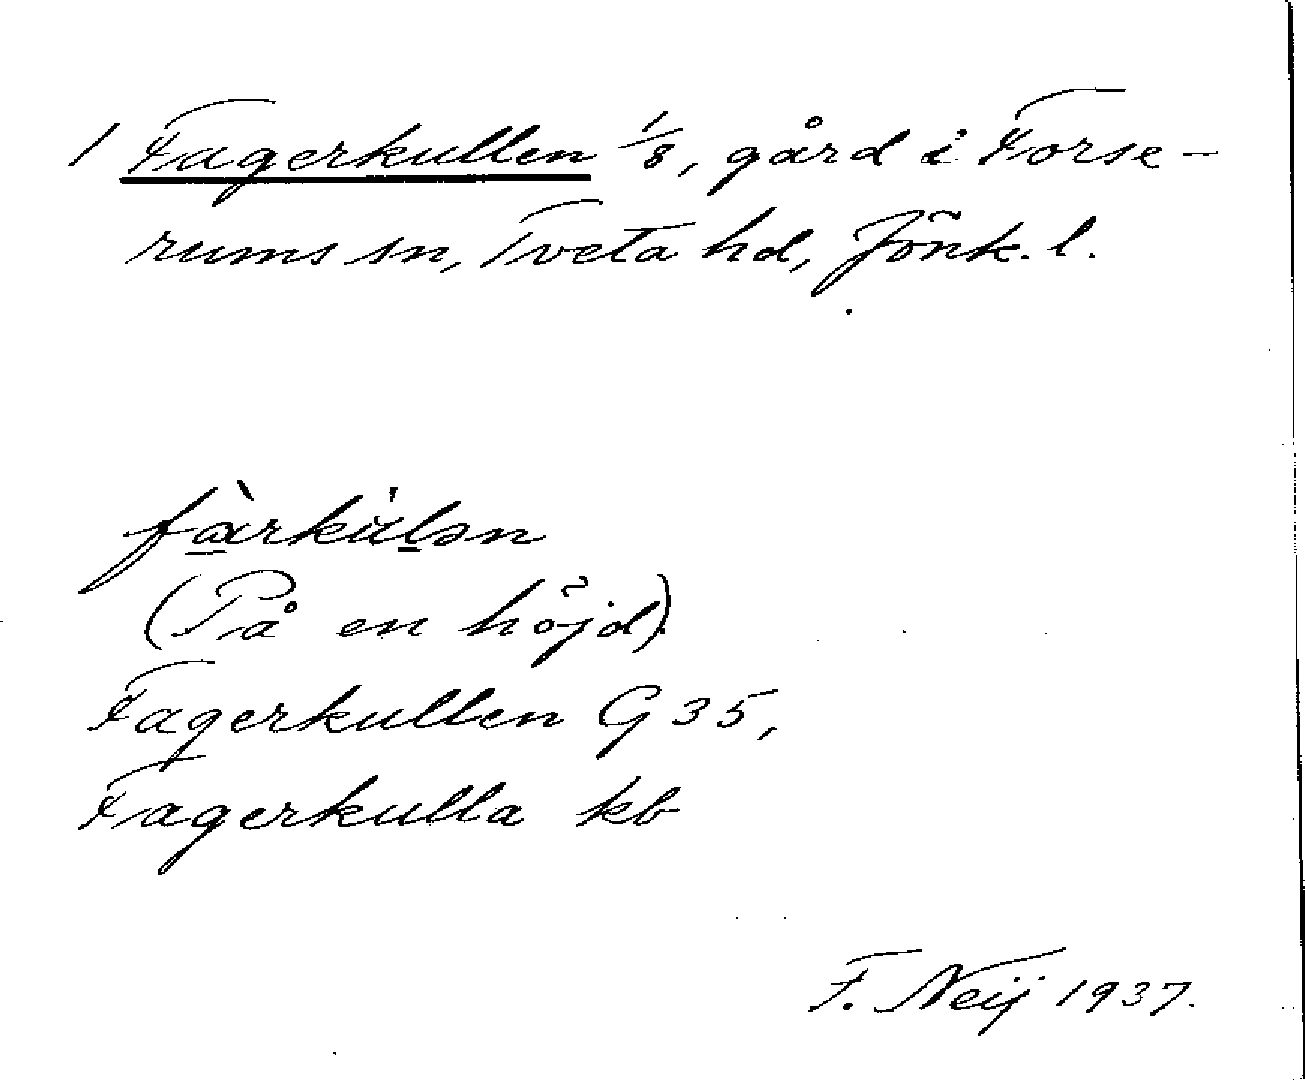 1 Fagerkullen 1/8, gård i Forse-
rums sn, Tveta hd, Jönk. l.
fàrkúlən
(På en höjd)
Fagerkullen G 35,
Fagerkulla kb
F. Neij 1937.